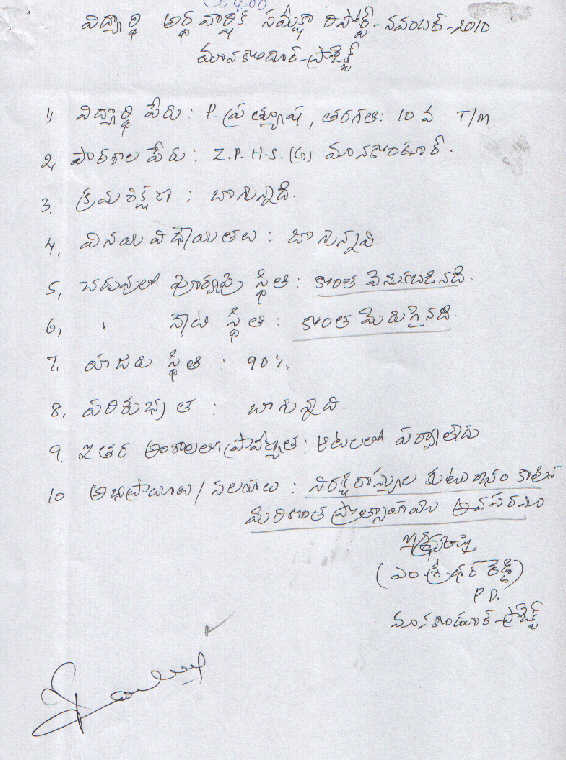 విద్యార్థి అర్థ వార్షిక సమీక్షా రిపోర్ట్ - నవంబర్-2010
మానకొండూర్-ప్రాజెక్ట్
1, విద్యార్థి పేరు : P. ప్రత్యూష, తరగతి: 10 వ T/m
2, పాఠశాల పేరు : Z.P.H.S. (G) మానకొండూర్.
3. క్రమశిక్షణ : బాగున్నది.
4, వినయ విధేయతలు : బాగున్నవి
5, చదువులో పూర్వపు స్థితి : కొంత వెనుకబడినది.
6, " నేటి స్థితి : కొంత మెరుగైనది
7. హాజరు స్థితి : 90%
8. పరిశుభ్రత : బాగున్నది
9. ఇతర అంశాలలో ప్రావీణ్యత : ఆటలలో పర్వాలేదు
10 అభిప్రాయాలు / సలహాలు : నిరక్షరాస్యుల కుటుంబం
మరికొంత ప్రోత్సాహం అవసరం
(ఎం. శ్రీధర్ రెడ్డి)
P.D.
మానకొండూర్-ప్రాజెక్ట్